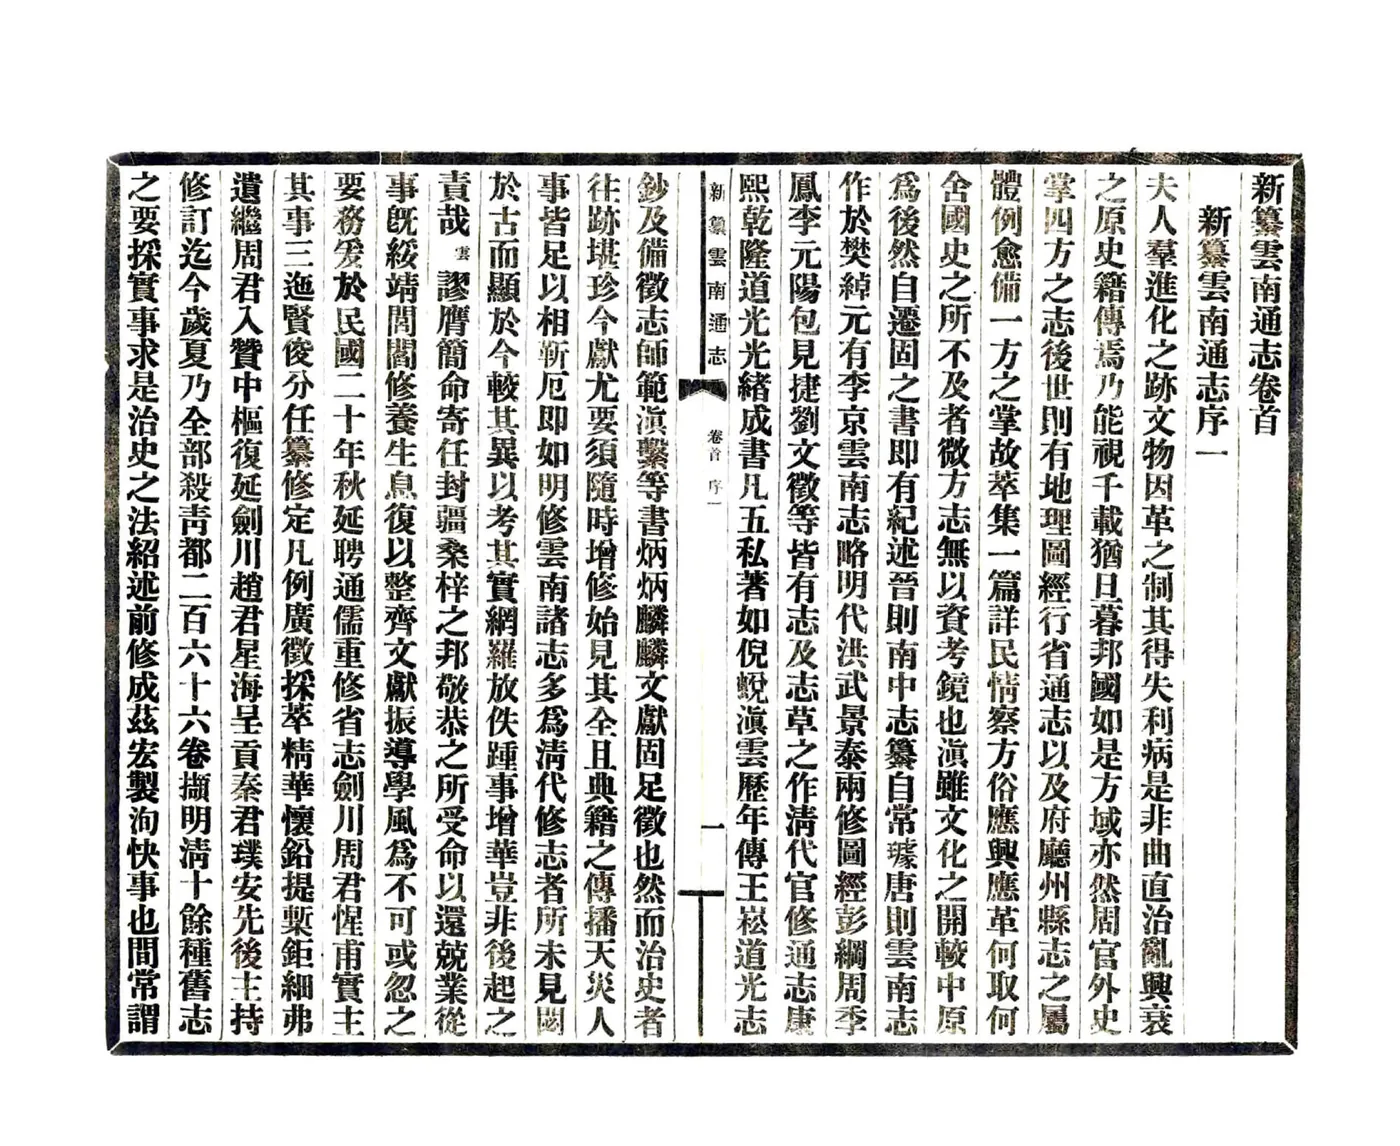 新纂雲南通志卷首
新纂雲南通志序一
夫人羣進化之跡文物因革之制其得失利病是非曲直治亂興衰
之原史籍傳焉乃能視千載猶旦暮邦國如是方域亦然周官外史
掌四方之志後世則有地理圖經行省通志以及府廳州縣志之屬
體例愈備一方之掌故萃集一篇詳民情察方俗應興應革何取何
舍國史之所不及者微方志無以資考鏡也滇雖文化之開較中原
爲後然自遷固之書即有紀述晉則南中志纂自常璩唐則雲南志
作於樊綽元有李京雲南志略明代洪武景泰兩修圖經彭綱周季
鳳李元陽包見捷劉文徵等皆有志及志草之作淸代官修通志康
熙乾隆道光光緖成書凡五私著如倪蛻滇雲歷年傳王崧道光志
新纂雲南通志
卷首 序一
一
鈔及備徵志師範滇繫等書炳炳麟麟文獻固足徵也然而治史者
往跡堪珍今獻尤要須隨時增修始見其全且典籍之傳播天災人
事皆足以相靳厄即如明修雲南諸志多爲淸代修志者所未見閟
於古而顯於今較其異以考其實網羅放佚踵事增華豈非後起之
責哉雲謬膺簡命寄任封疆桑梓之邦敬恭之所受命以還兢業從
事旣綏靖閭閻修養生息復以整齊文獻振導學風爲不可或忽之
要務爰於民國二十年秋延聘通儒重修省志劍川周君惺甫實主
其事三迤賢俊分任纂修定凡例廣徵採萃精華懷鉛提槧鉅細弗
遺繼周君入贊中樞復延劍川趙君星海呈貢秦君璞安先後主持
修訂迄今歲夏乃全部殺靑都二百六十六卷擷明淸十餘種舊志
之要採實事求是治史之法紹述前修成茲宏製洵快事也間常謂